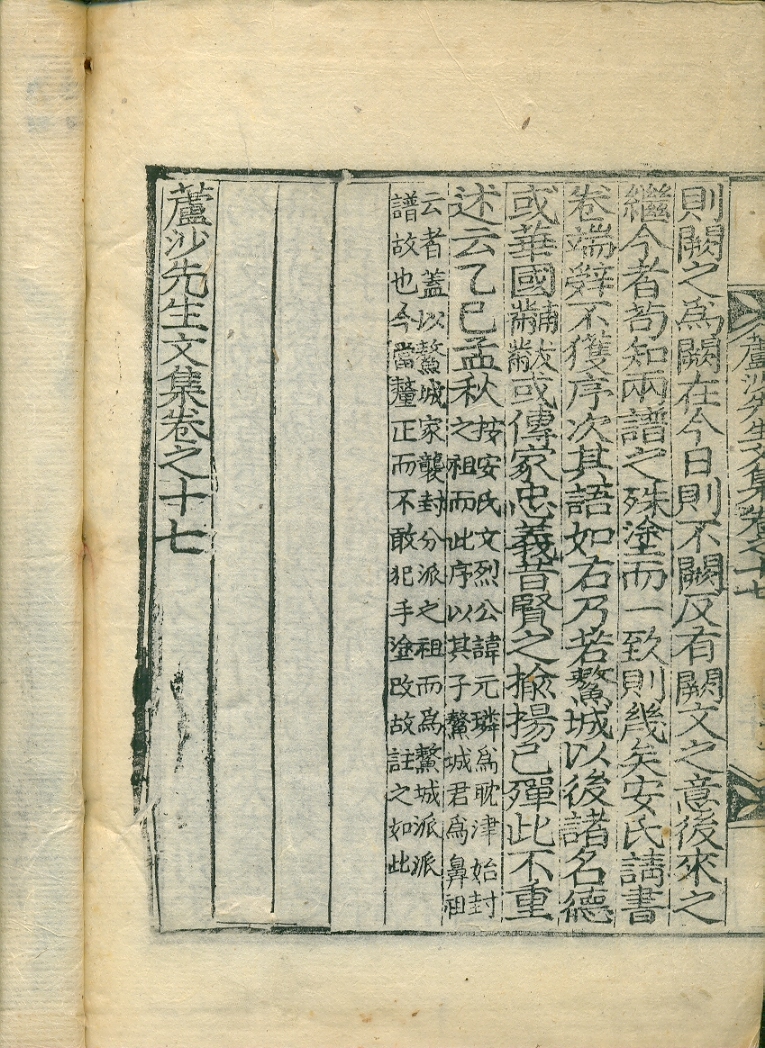 蘆沙先生文集卷之十七
則闕之爲闕在今日則不闕反有闕文之意後來之
繼今者苟知兩譜之殊塗而一致則幾矣安氏請書
卷端辭不獲序次其語如右乃若鰲城以後諸名德
或華國黼黻或傳家忠義昔賢之揄揚已殫此不重
述云乙巳孟秋
按安氏文烈公諱元璘爲耽津始封
之祖而此序以其子鰲城君爲鼻祖
云者蓋以鰲城家襲封分派之祖而爲鰲城派派
譜故也今當釐正而不敢犯手塗改故註之如此
蘆沙先生文集卷之十七